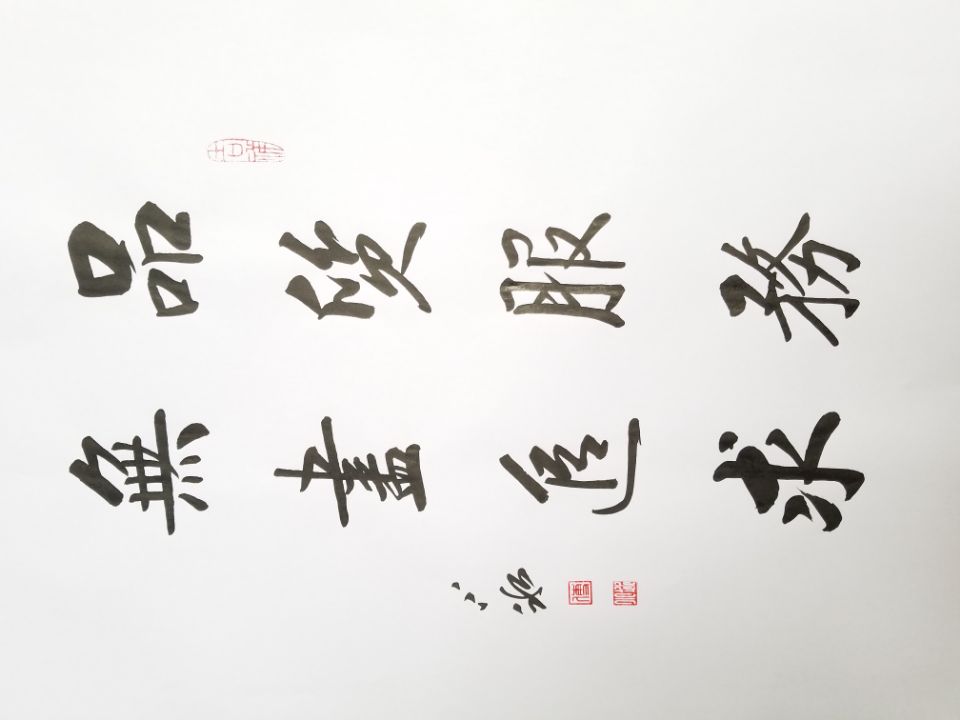 品質服務
無盡追求